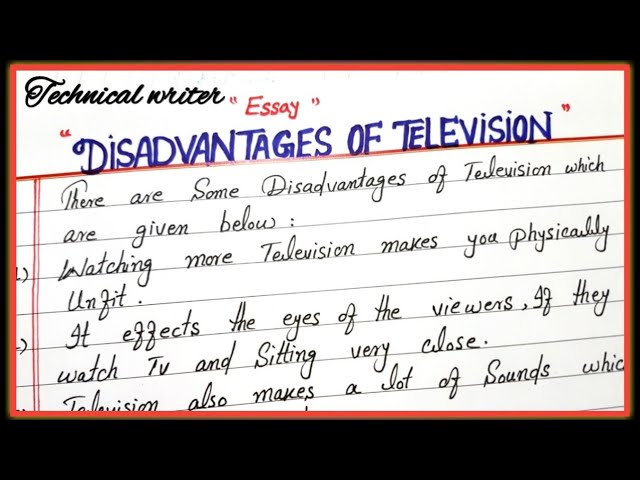 Technical writer
" Essay "
"DISADVANTAGES OF TELEVISION"
There are Some Disadvantages of Television which
are given below:
Watching more Television makes you physically
Unfit.
It effects the eyes of the viewers, If they
watch Tv and Sitting very close.
Television also makes a lot of Sounds which